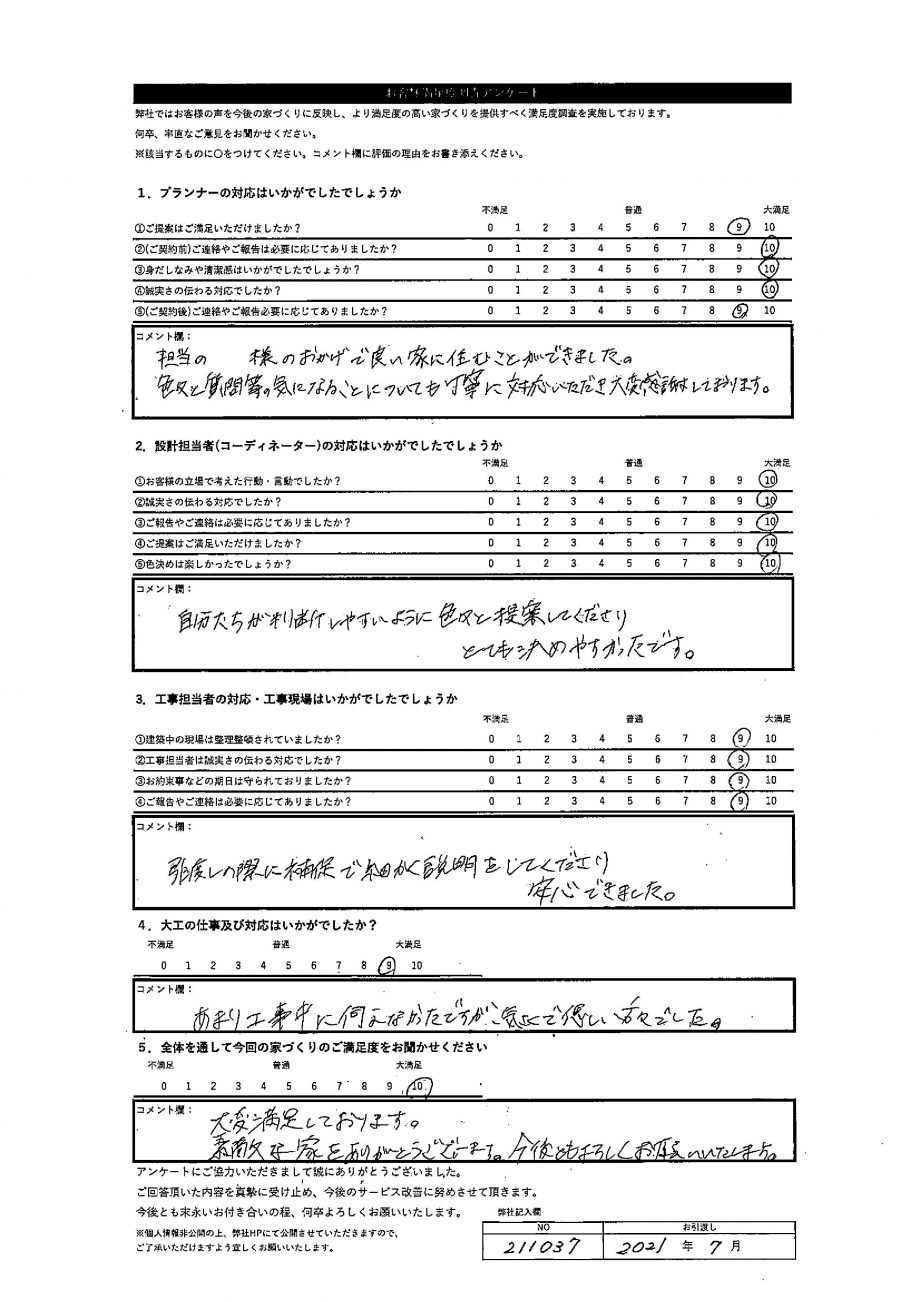 お客様満足度調査アンケート
弊社ではお客様の声を今後の家づくりに反映し、より満足度の高い家づくりを提供すべく満足度調査を実施しております。
何卒、率直なご意見をお聞かせください。
※該当するものに〇をつけてください。コメント欄に評価の理由をお書き添えください。
1．プランナーの対応はいかがでしたでしょうか
不満足 普通 大満足
①ご提案はご満足いただけましたか？ 0 1 2 3 4 5 6 7 8 9 10
②(ご契約前)ご連絡やご報告は必要に応じてありましたか？ 0 1 2 3 4 5 6 7 8 9 10
③身だしなみや清潔感はいかがでしたでしょうか？ 0 1 2 3 4 5 6 7 8 9 10
④誠実さの伝わる対応でしたか？ 0 1 2 3 4 5 6 7 8 9 10
⑤(ご契約後)ご連絡やご報告必要に応じてありましたか？ 0 1 2 3 4 5 6 7 8 9 10
コメント欄：
担当の 様のおかげで良い家に住むことができました。
色々と質問等の気になることについても丁寧に対応いただき大変感謝しております。
2．設計担当者(コーディネーター)の対応はいかがでしたでしょうか
不満足 普通 大満足
①お客様の立場で考えた行動・言動でしたか？ 0 1 2 3 4 5 6 7 8 9 10
②誠実さの伝わる対応でしたか？ 0 1 2 3 4 5 6 7 8 9 10
③ご報告やご連絡は必要に応じてありましたか？ 0 1 2 3 4 5 6 7 8 9 10
④ご提案はご満足いただけましたか？ 0 1 2 3 4 5 6 7 8 9 10
⑤色決めは楽しかったでしょうか？ 0 1 2 3 4 5 6 7 8 9 10
コメント欄：
自分たちが判断しやすいように色々と提案してくださり
とても決めやすかったです。
3．工事担当者の対応・工事現場はいかがでしたでしょうか
不満足 普通 大満足
①建築中の現場は整理整頓されていましたか？ 0 1 2 3 4 5 6 7 8 9 10
②工事担当者は誠実さの伝わる対応でしたか？ 0 1 2 3 4 5 6 7 8 9 10
③お約束事などの期日は守られておりましたか？ 0 1 2 3 4 5 6 7 8 9 10
④ご報告やご連絡は必要に応じてありましたか？ 0 1 2 3 4 5 6 7 8 9 10
コメント欄：
引渡しの際に 細かく説明をしてくださり
安心できました。
4．大工の仕事及び対応はいかがでしたか？
不満足 普通 大満足
0 1 2 3 4 5 6 7 8 9 10
コメント欄：
あまり工事中に伺えなかたですが 優しい方々でした。
5．全体を通して今回の家づくりのご満足度をお聞かせください
不満足 普通 大満足
0 1 2 3 4 5 6 7 8 9 10
コメント欄：
大変満足しております。
素敵な家をありがとうございます。今後ともよろしくお願いいたします。
アンケートにご協力いただきまして誠にありがとうございました。
ご回答頂いた内容を真摯に受け止め、今後のサービス改善に努めさせて頂きます。
今後とも末永いお付き合いの程、何卒よろしくお願いいたします。
※個人情報非公開の上、弊社HPにて公開させていただきますので、
ご了承いただけますよう宜しくお願いいたします。
弊社記入欄
NO お引渡し
211037 2021 年 7 月